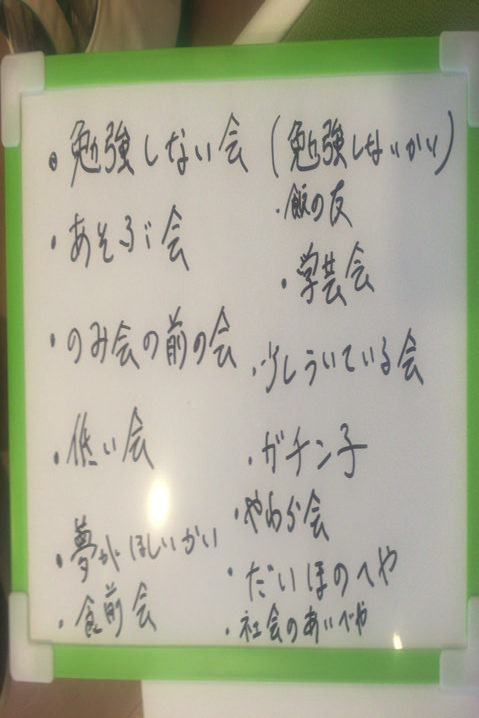 ・勉強しない会（勉強しないかい）
・飯の友
・あそぶ会
・学芸会
・のみ会の前の会
・少しういている会
・低い会
・ガチン子
・やわら会
・夢がほしいかい
・だいほのへや
・食前会
・社会のあいべや